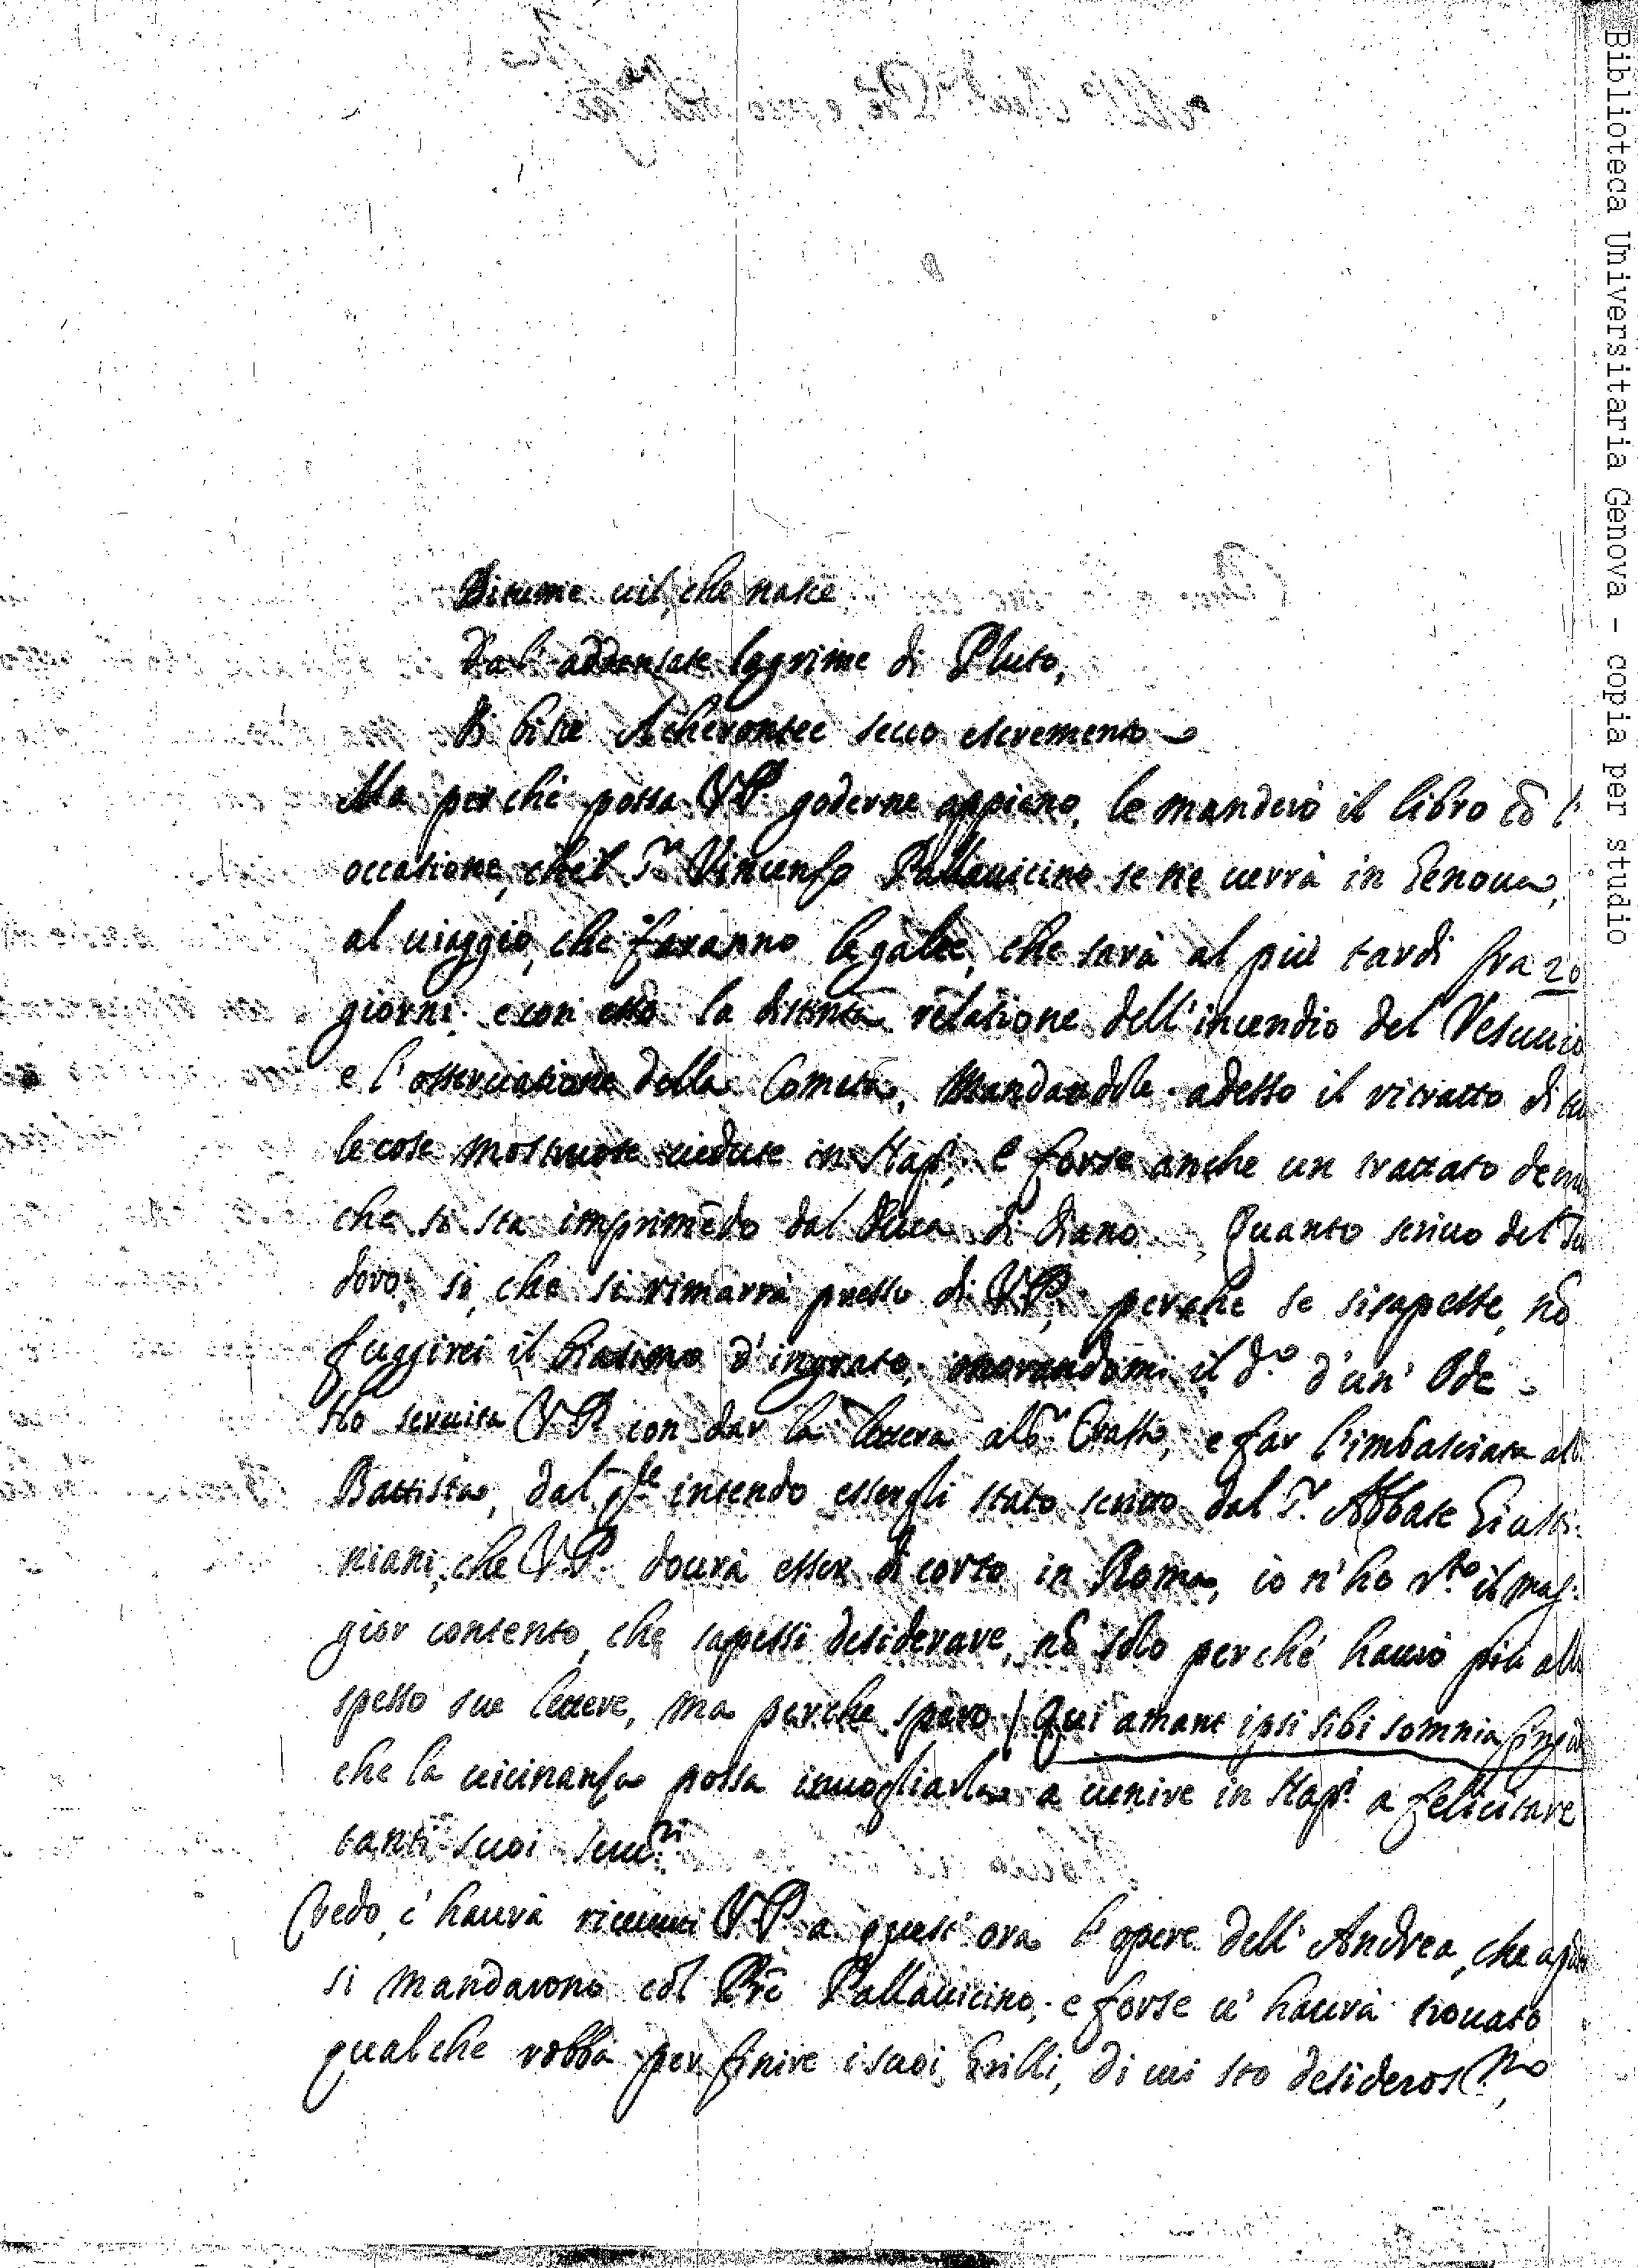 Bitume vil, che nasce
Dal' addensate lagrime di Pluto,
Di bile Acherontee secco escremento
Ma perchè possa V.P. goderne appieno, le manderò il libro cõ l'
occasione, che'l Sr. Vincenso Pallauicino se ne verrà in Genoua,
al uiaggio, che faranno le galee, che sarà al più tardi fra 20
giorni. e con esso la distinta relatione dell'incendio del Vesuuio
e l'osseruatione della Cometa, Mandandole adesso il ritratto di
le cose mostruose uedute in Napi. e forse anche un trattato de
che si sta imprimẽdo dal Duca di Diano. Quanto scriuo del
doro, si, che si rimarrà presso di V.P., perche se si sapesse, nõ
fuggirei il biasimo d'ingrato, onorandomi il do. d'un' Ode
Ho seruita V.P. con dar la lettera al Sr. Crasso, e far l'imbasciata al
Battista, dal qle intendo essergli stato scritto dal Sr. Abbate Giusti:
niani, che V.P. dourà esser di corto in Roma, io n'ho rto. il mag:
gior contento, che sapessi desiderare, nõ solo perché haurò più
spesso sue lettere, ma perche spero / Qui amant ipsi sibi somnia
che la uicinansa possa inuogliarla a uenire in Napi. a felicitare
tanti suoi seruri.
Credo, c'haurà riceuuti V.P. a quest'ora l'opere dell'Andrea, che
si mandarono col Pre. Pallauicino, e forse u'haurà trouato
qualche robba per finire i suoi Grilli, di cui sto desiderosmo.,
Biblioteca Universitaria Genova - copia per studio